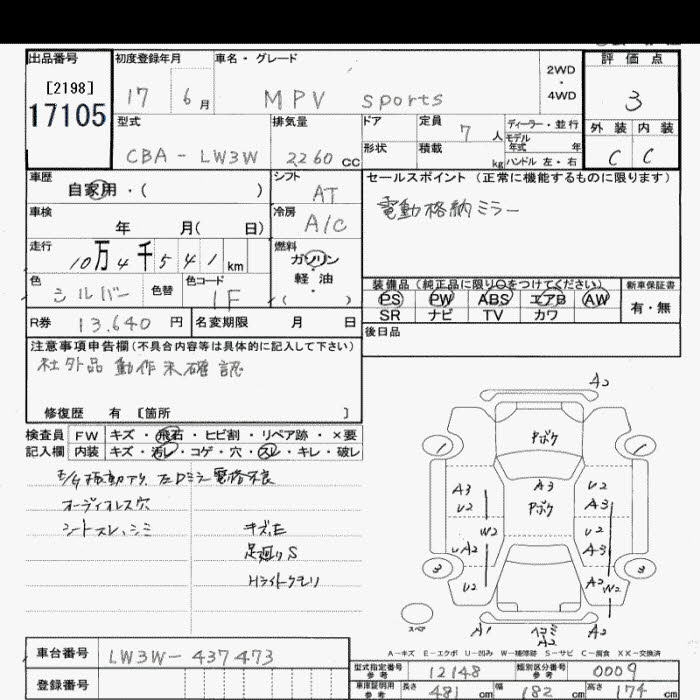 出品番号 初度登録年月 車名・グレード 評価点
[2198]
17105
17 6月 MPV sports 2WD・4WD 3
型式 排気量 ドア 定員 7人 ディーラー・並行 外装 内装
CBA-LW3W 2260cc 形状 積載 kg モデル年式 年 ハンドル 左・右 C C
車歴 シフト セールスポイント (正常に機能するものに限ります)
自家用・( ) AT 電動格納ミラー
車検 冷房
年 月( 日) A/C
走行 燃料
10万4千541km ガソリン・軽油
色 色替 色コード ( ) 装備品 (純正品に限り○をつけてください) 新車保証書
シルバー 1F PS PW ABS エアB AW 有・無
SR ナビ TV カワ
R券 13,640円 名変期限 月 日 後日品
注意事項申告欄(不具合内容等は具体的に記入して下さい)
社外品 動作未確認
修復歴 有 [箇所 ]
検査員 FW キズ・飛石・ヒビ割・リペア跡・×要
記入欄 内装 キズ・汚レ・コゲ・穴・スレ・キレ・破レ
左Dミラー電格不良
オーディオレス穴
シートスレ、シミ キズ、E
足廻りS
Hライトクモリ
A2
Pボク
1 1
A3 A3 U2
U2 Pボク A3
W2 U2
UA2 A3
3 3
U2 A2 W2
スペア A1 ヘコミ A2
A2
A-キズ E-エクボ U-凹み W-補修跡 S-サビ C-腐食 XX-交換済
車台番号 LW3W-437473
型式指定番号 参考 12148 類別区分番号 参考 0009
登録番号
車庫証明用 参考 長さ 481cm 幅 182cm 高さ 174cm